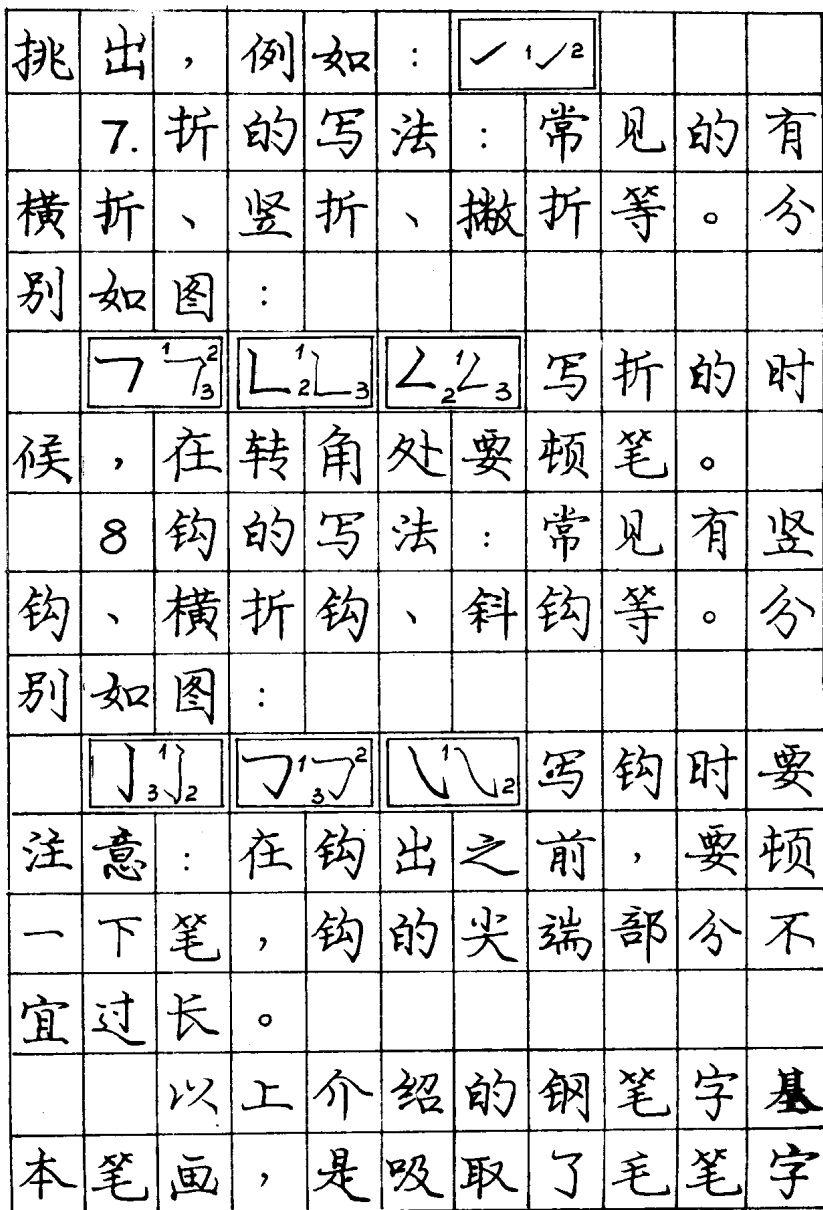 挑出，例如：✓ 1✓2
7.折的写法：常见的有
横折、竖折、撇折等。分
别如图：
𠃍 1𠃍23 𠃊 12𠃊3 𠃋 12𠃋3 写折的时
候，在转角处要顿笔。
8 钩的写法：常见有竖
钩、横折钩、斜钩等。分
别如图：
亅 1亅32 𠃌 1𠃌23 ㇂ 1㇂2 写钩时要
注意：在钩出之前，要顿
一下笔，钩的尖端部分不
宜过长。
以上介绍的钢笔字基
本笔画，是吸取了毛笔字